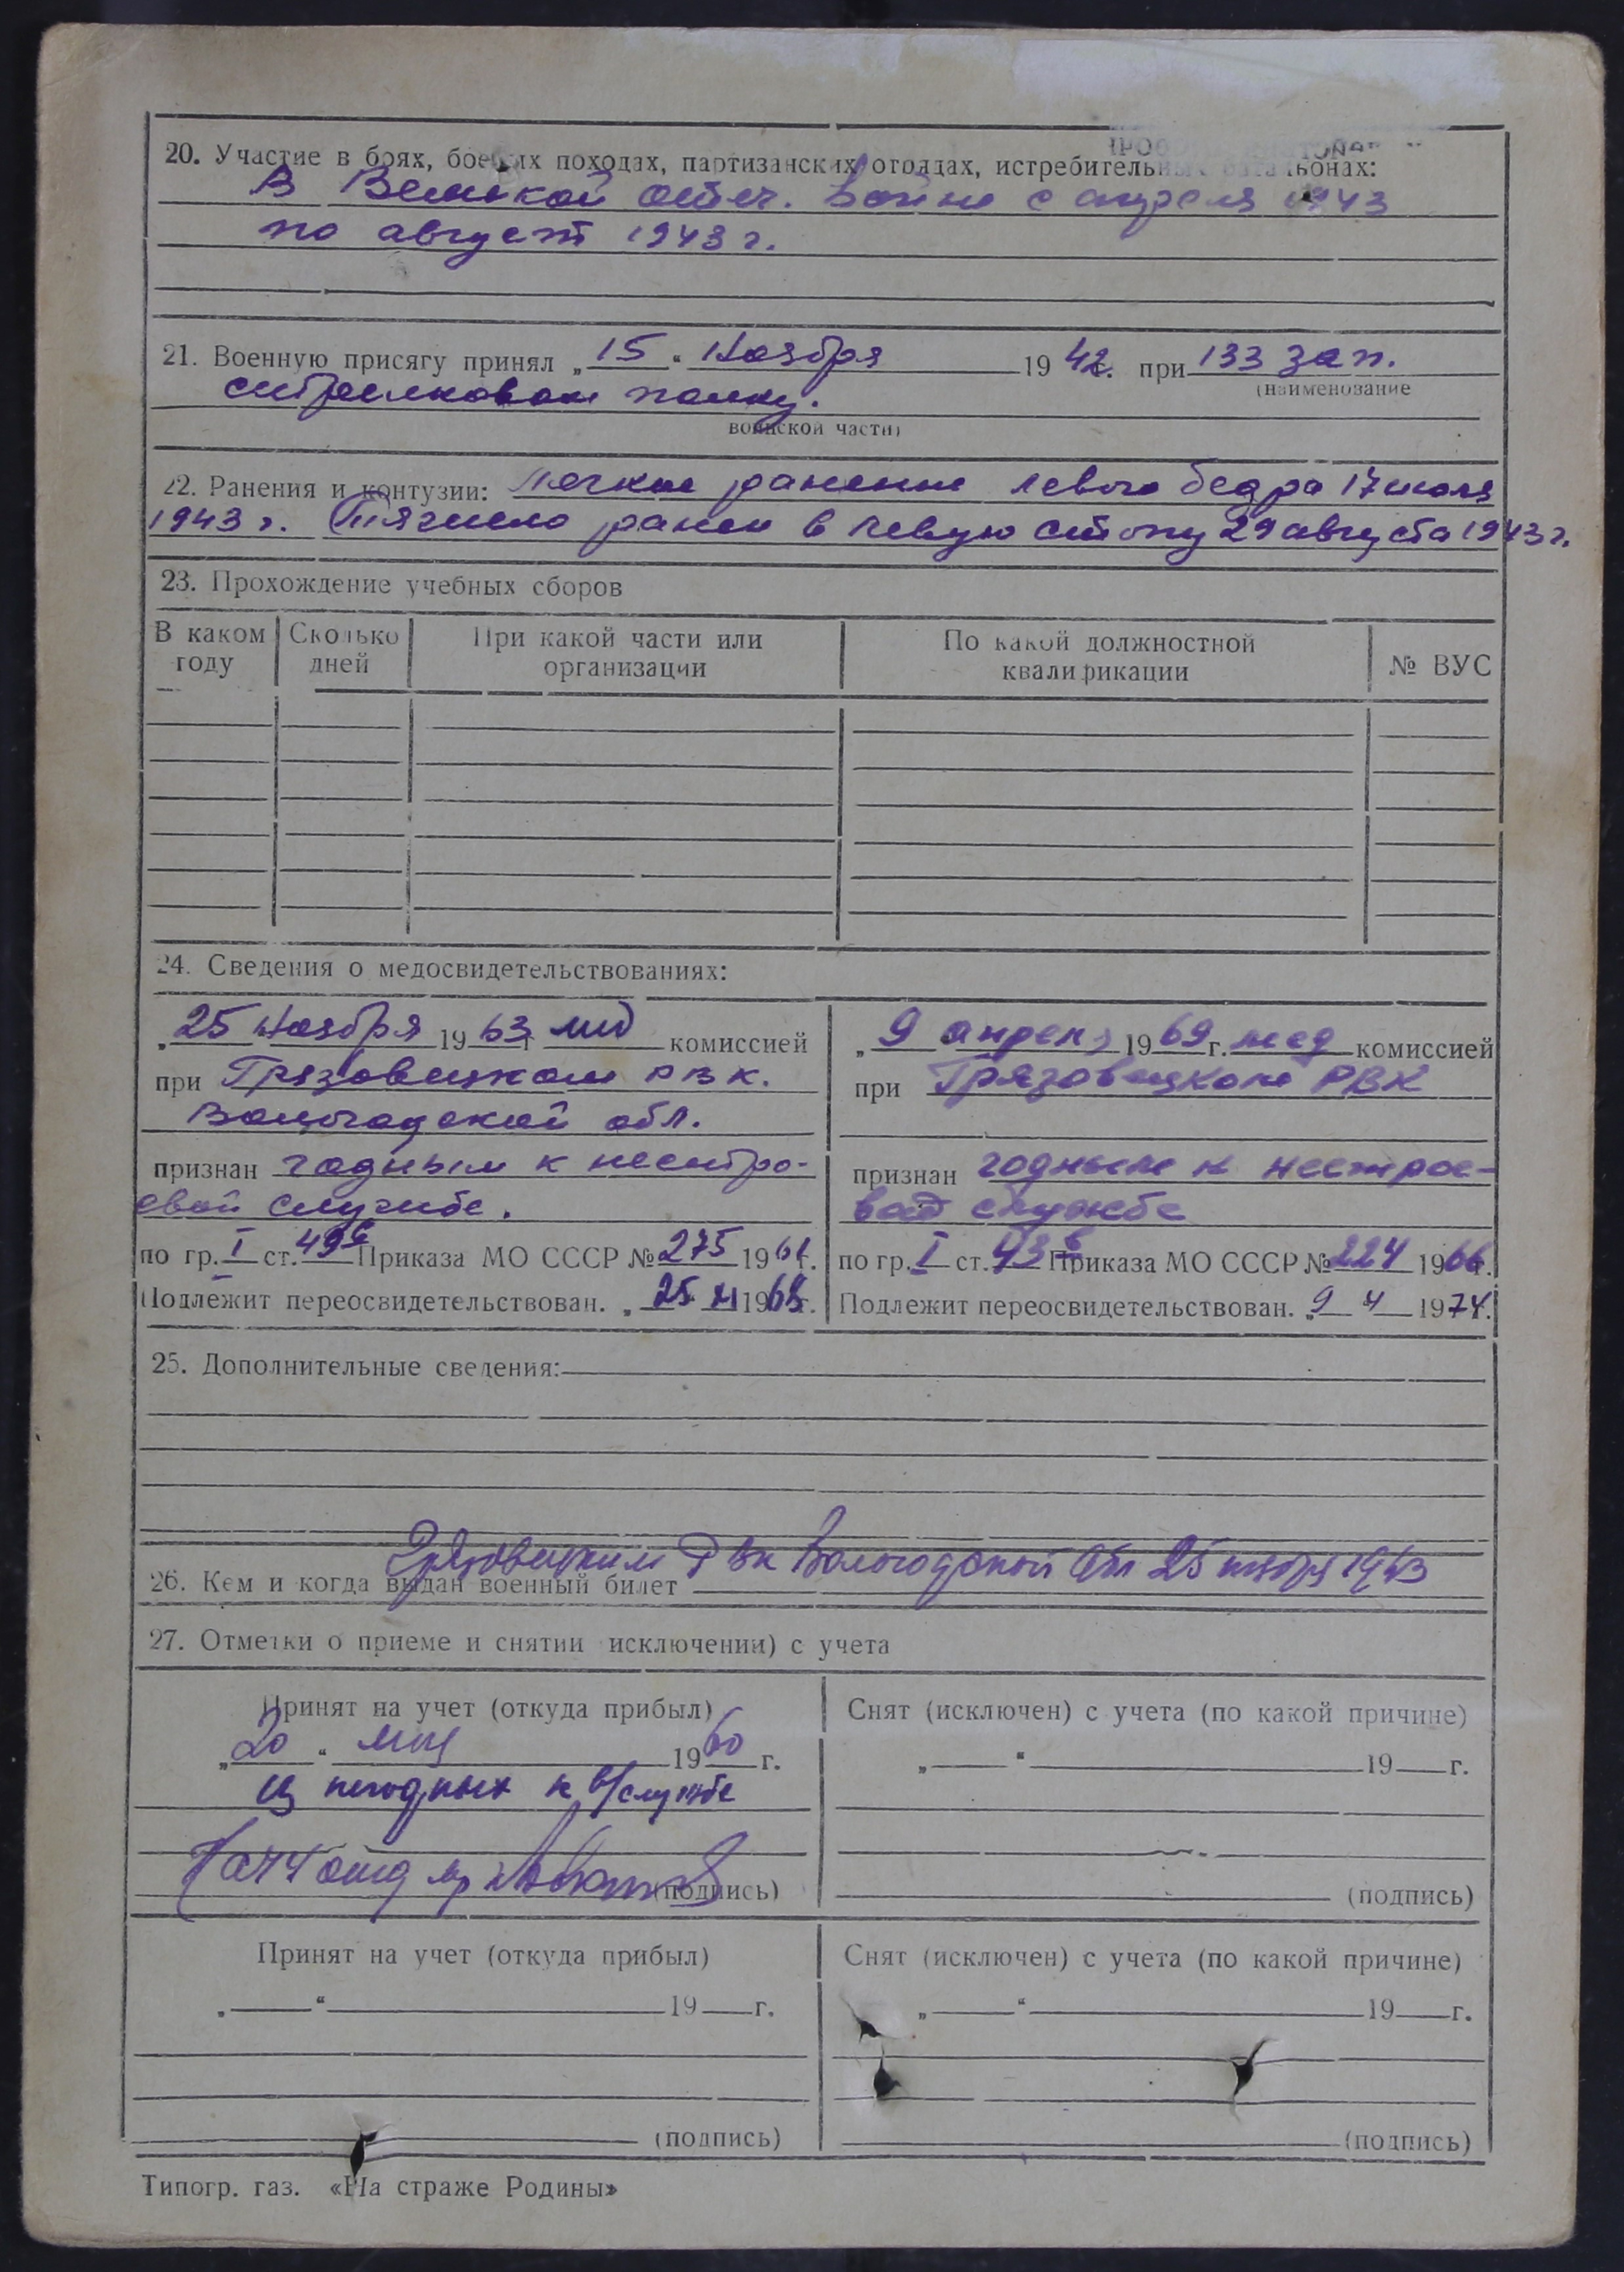 20. Участие в боях, боевых походах, партизанских отрядах, истребительных батальонах:
В Великой отеч. войне с апреля 1943
по август 1943 г.
21. Военную присягу принял „15“ Ноября 1942г. при 133 зап.
(наименование
стрелковом полку.
воинской части)
22. Ранения и контузии: Легкое ранение левого бедра 17 июля
1943 г. Тяжело ранен в левую стопу 29 августа 1943 г.
23. Прохождение учебных сборов
В каком году
Сколько дней
При какой части или организации
По какой должностной квалификации
№ ВУС
24. Сведения о медосвидетельствованиях:
„25 Ноября 1963 г. мед комиссией
при Грязовецком РВК.
Вологодской обл.
признан годным к нестро-
евой службе.
по гр. I ст. 49 Приказа МО СССР № 275 1961г.
Подлежит переосвидетельствован. „25 XI 1968г.
„9 апреля 1969г. мед комиссией
при Грязовецком РВК
признан годным к нестрое-
вой службе
по гр. I ст. 43 в Приказа МО СССР № 224 1966г.
Подлежит переосвидетельствован. „9 4 1974.
25. Дополнительные сведения:
Грязовецким РВК Вологодской обл 25 ноября 1943
26. Кем и когда выдан военный билет
27. Отметки о приеме и снятии исключении) с учета
Принят на учет (откуда прибыл)
„20“ мая 1960 г.
из негодных к в/службе
Нач 4 отд м-р
(подпись)
Снят (исключен) с учета (по какой причине)
„ “ 19 г.
(подпись)
Принят на учет (откуда прибыл)
„ “ 19 г.
(подпись)
Снят (исключен) с учета (по какой причине)
„ “ 19 г.
(подпись)
Типогр. газ. «На страже Родины»